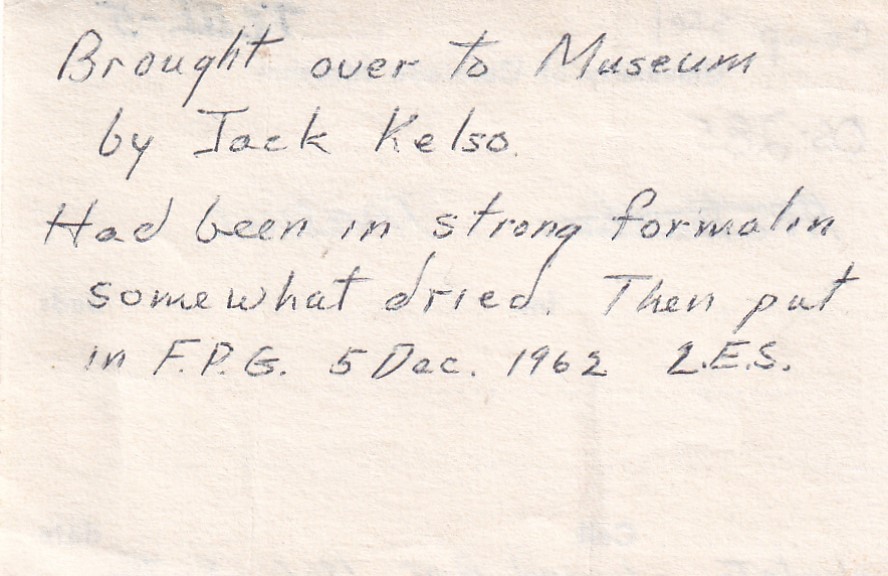 Brought over to Museum
by Jack Kelso.
Had been in strong formalin
somewhat dried. Then put
in F.P.G. 5 Dec. 1962 L.E.S.